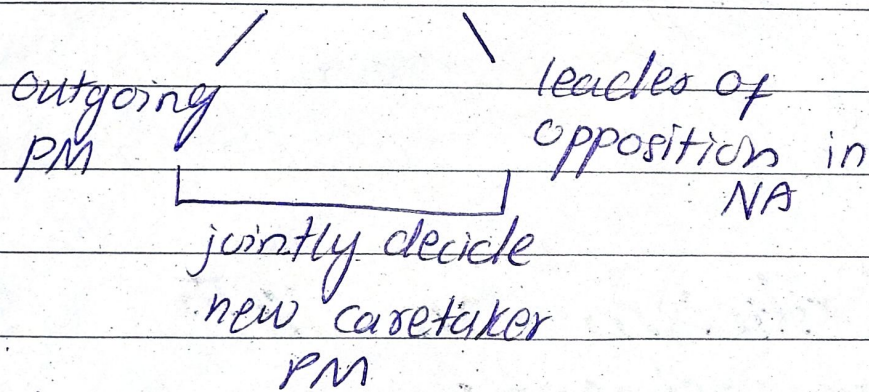 outgoing
PM
leader of
opposition in
NA
jointly decide
new caretaker
PM